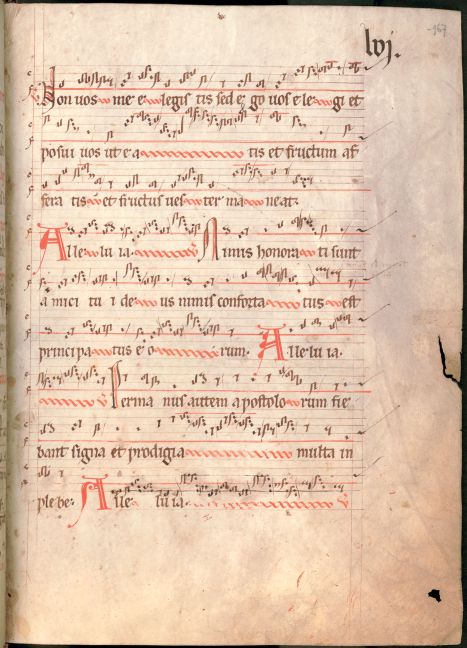 lvj.
167
Non uos me e legis tis sed ego uos e le gi et
posui uos ut e a tis et fructum af
fera tis et fructus ues ter ma neat
Alle lu ia ℣ Nimis honora ti sunt
a mici tu i de us nimis conforta tus est
principa tus e o rum. Alle lu ia.
℣ Per ma nus autem a postolo rum fie
bant signa et prodigia multa in
ple be Alle lu ia ℣